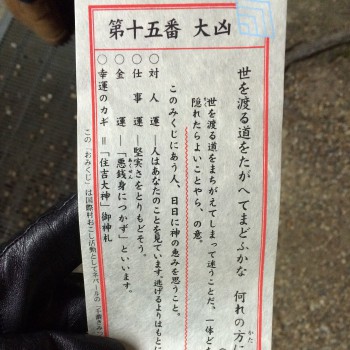 第十五番 大凶
世を渡る道をたがへてまどふかな 何れの方に
世を渡る道をまちがえてしまって迷うことだ、一体ど
隠れたらよいことやら、の意。
このみくじにあう人、日日に神の恵みを思うこと。
○対人運―人はあなたのことを見ています。逃げるよりはもとに
○仕事運―堅実さをとりもどそう。
○金運―「悪銭身につかず」といいます。
○幸運のカギ＝「住吉大神」御神札
この「おみくじ」は国際村おこし活動としてネパールの